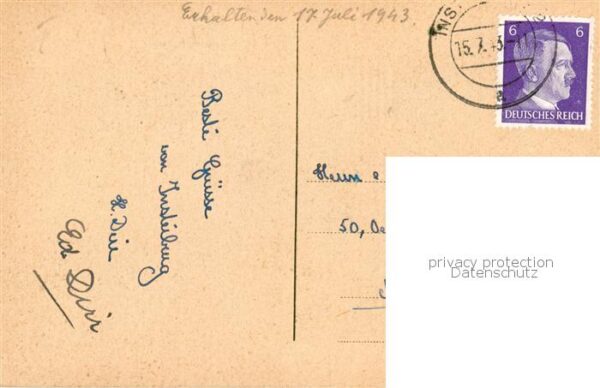 Erhalten den 17. Juli 1943.
INS
15.7.43
a
6 6
DEUTSCHES REICH
Beste Grüsse
von Insterburg
Ed. Dirr
Herrn
50,
privacy protection
Datenschutz